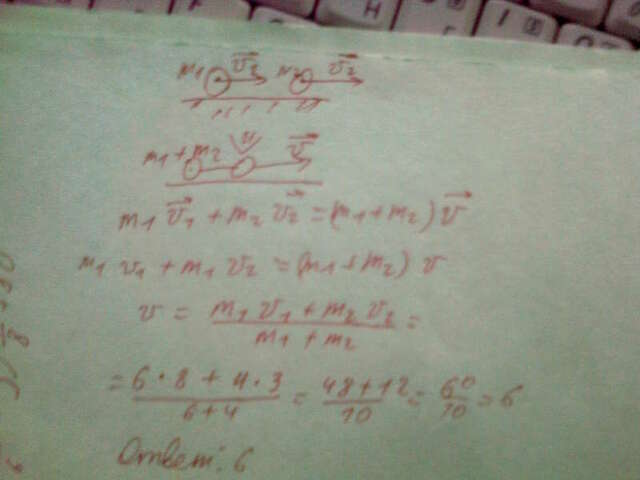 m₁ v⃗₂ m₂ v⃗₂
m₁+m₂ v⃗
m₁ v⃗₁ + m₂ v⃗₂ = (m₁+m₂) v⃗
m₁ v₁ + m₁ v₂ = (m₁+m₂) v
v = (m₁ v₁ + m₂ v₂)/(m₁ + m₂) =
= (6 · 8 + 4 · 3)/(6+4) = (48+12)/10 = 60/10 = 6
Ответ: 6